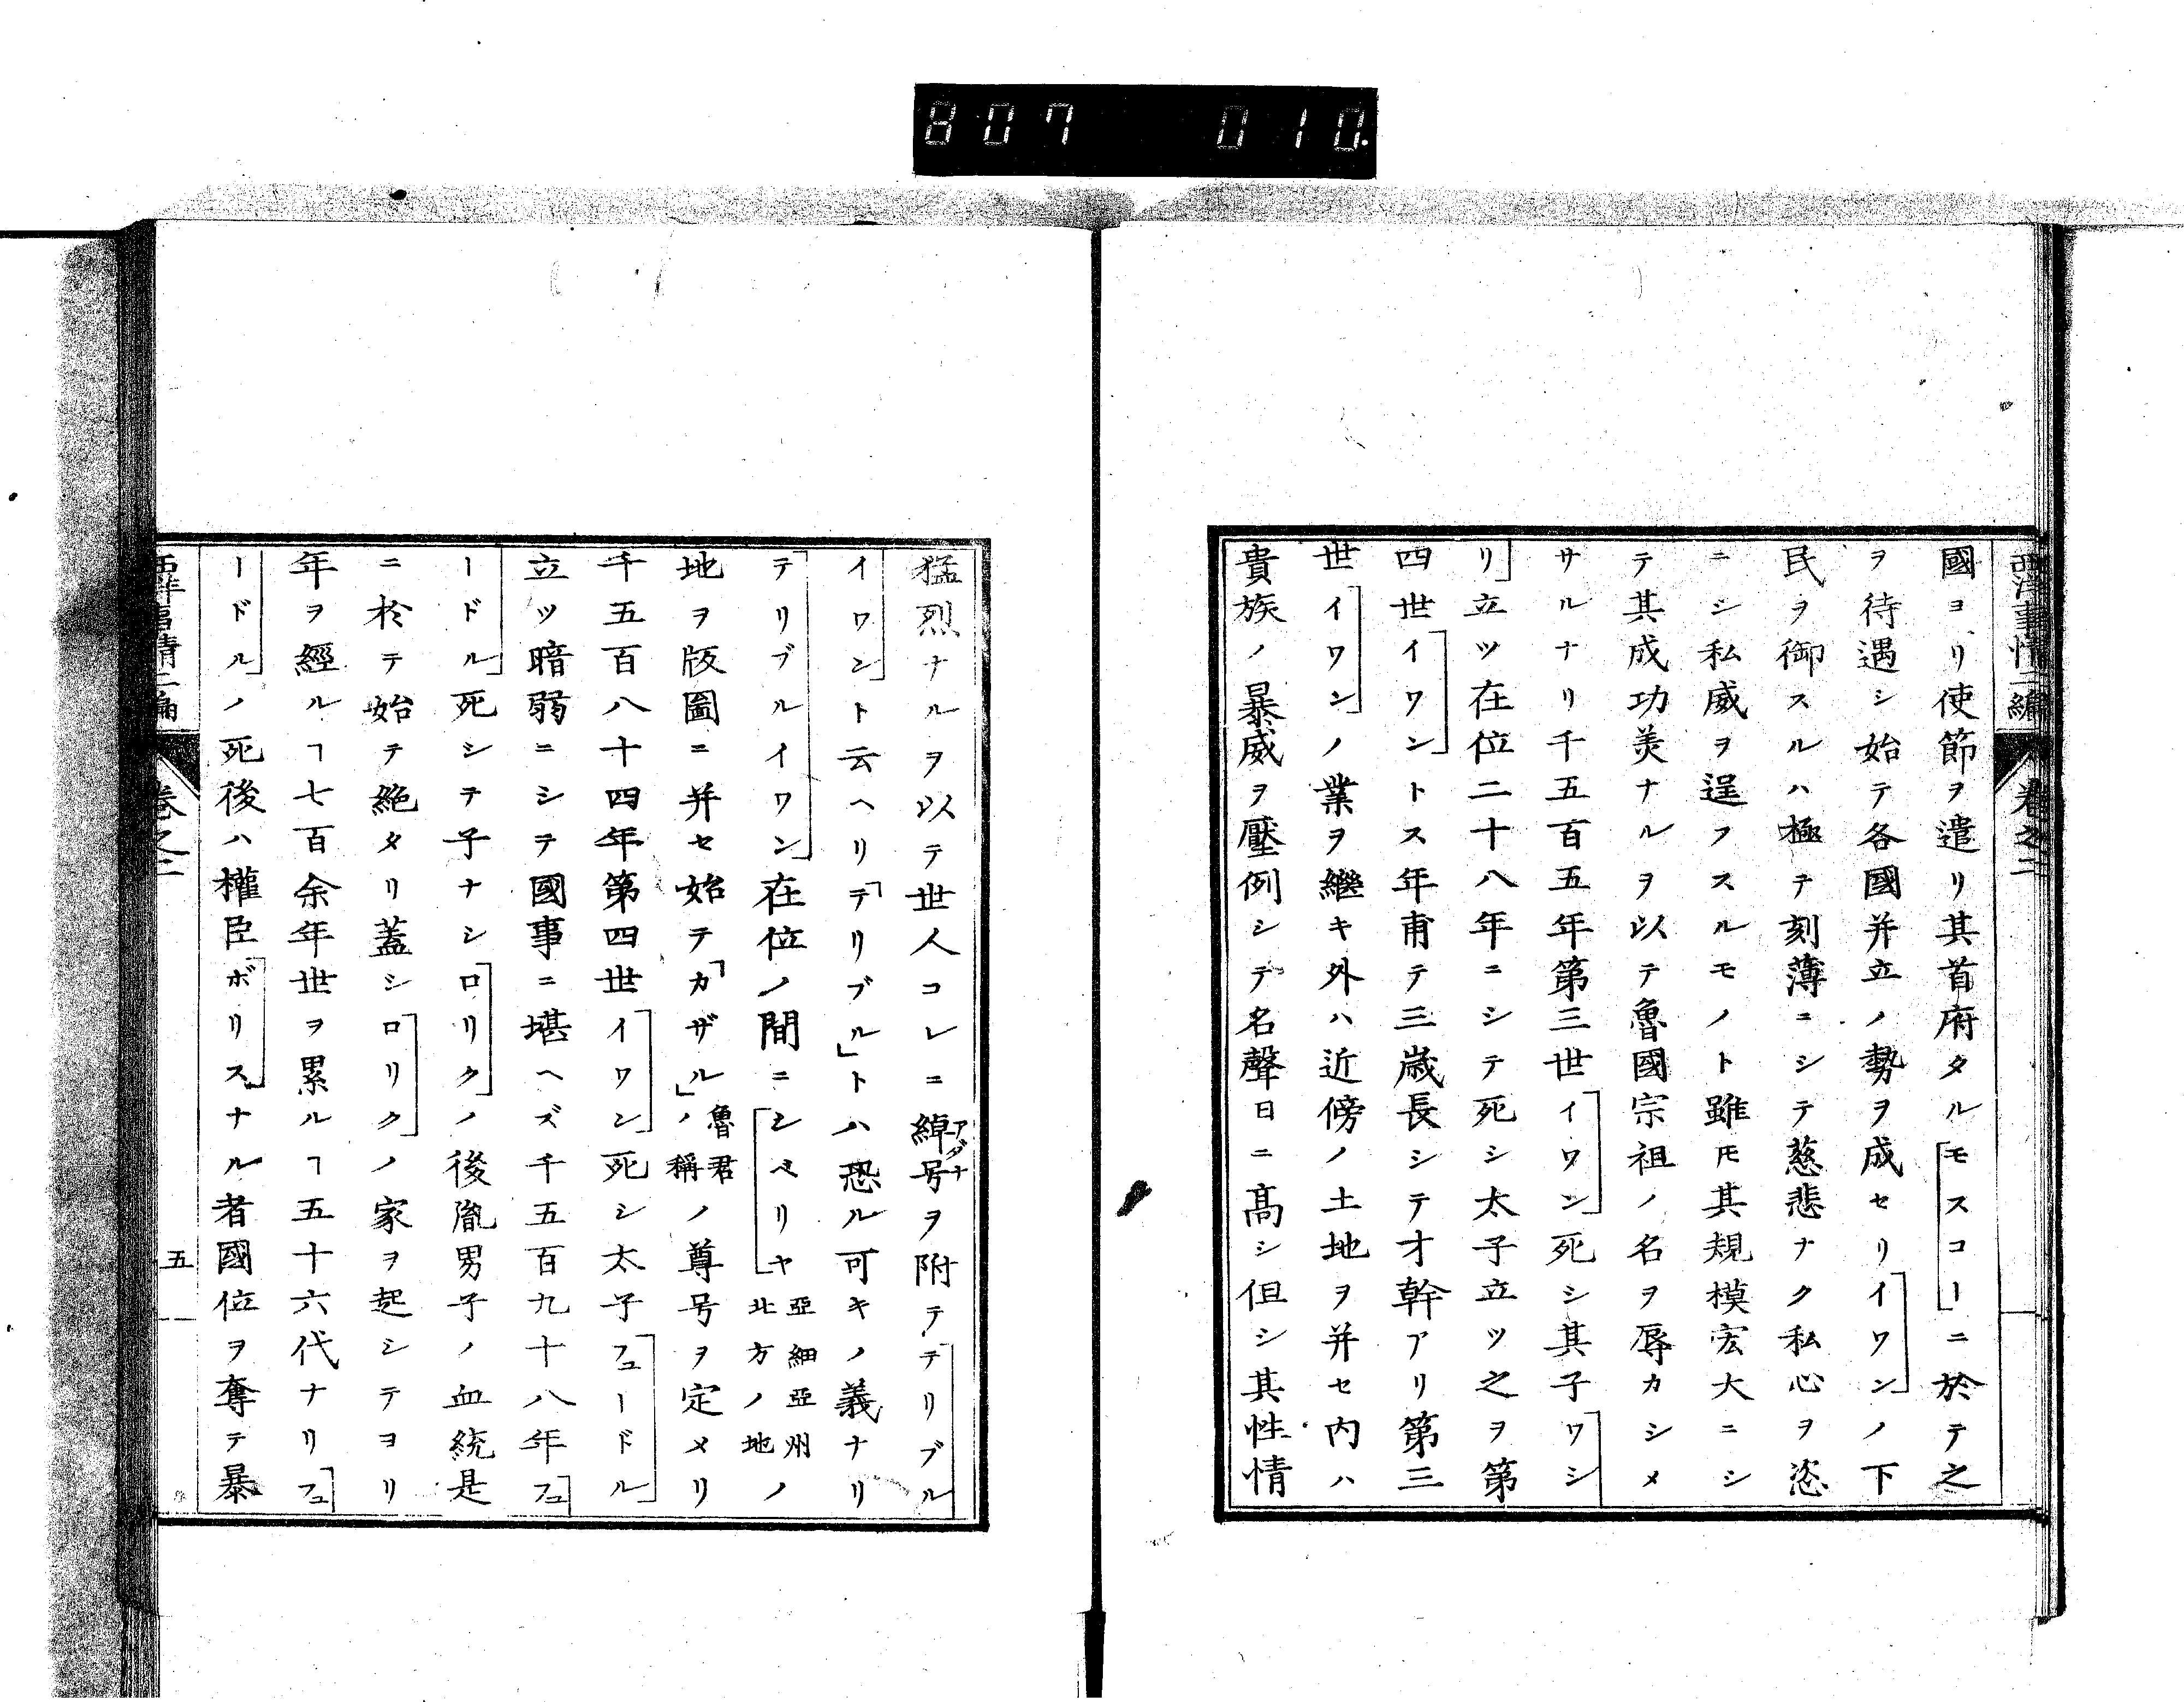 807 010.
西洋事情二編 卷之二
國ヨリ使節ヲ遣リ其首府タル「モスコー」ニ於テ之
ヲ待遇シ始テ各國并立ノ勢ヲ成セリ「イワン」ノ下
民ヲ御スルハ極テ刻薄ニシテ慈悲ナク私心ヲ恣
ニシ私威ヲ逞フスルモノト雖𪜈其規模宏大ニシ
テ其成功美ナルヲ以テ魯國宗祖ノ名ヲ辱カシメ
サルナリ千五百五年第三世「イワン」死シ其子「ワシ
リ」立ツ在位二十八年ニシテ死シ太子立ツ之ヲ第
四世「イワン」トス年甫テ三歳長シテ才幹アリ第三
世「イワン」ノ業ヲ繼キ外ハ近傍ノ土地ヲ并セ内ハ
貴族ノ暴威ヲ壓例シテ名聲日ニ高シ但シ其性情
猛烈ナルヲ以テ世人コレニ綽号ヲ附テ「テリブル
アダナ
イワン」ト云ヘリ「テリブル」トハ恐ル可キノ義ナリ
「テリブルイワン」在位ノ間ニ「シベリヤ」亞細亞州ノ北方ノ地ノ
地ヲ版圖ニ并セ始テ「カザル」ノ魯君ノ稱ノ尊号ヲ定メリ
千五百八十四年第四世「イワン」死シ太子「フヱードル」
立ツ暗弱ニシテ國事ニ堪ヘズ千五百九十八年「フヱ
ードル」死シテ子ナシ「ロリク」ノ後胤男子ノ血統是
ニ於テ始テ絶タリ蓋シ「ロリク」ノ家ヲ起シテヨリ
年ヲ經ルヿ七百余年世ヲ累ルヿ五十六代ナリ「フヱ
ードル」ノ死後ハ權臣「ボリス」ナル者國位ヲ奪テ暴
西洋事情二編 卷之二 五